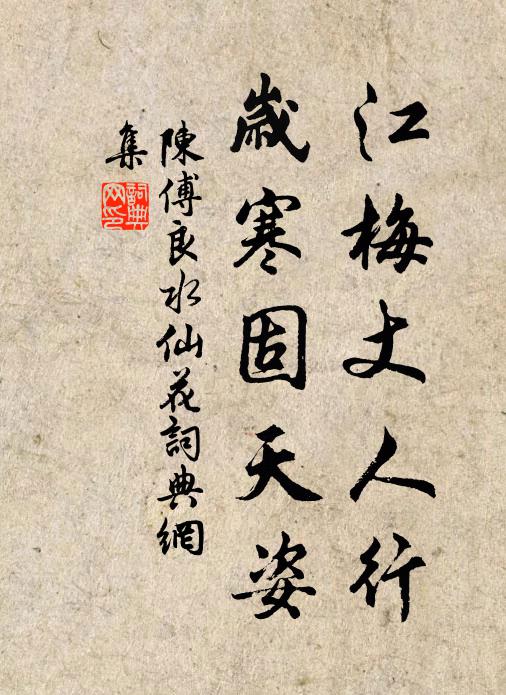 江梅丈人行
歲寒固天姿
陳傅良水仙花詞典網
集
詞典網印